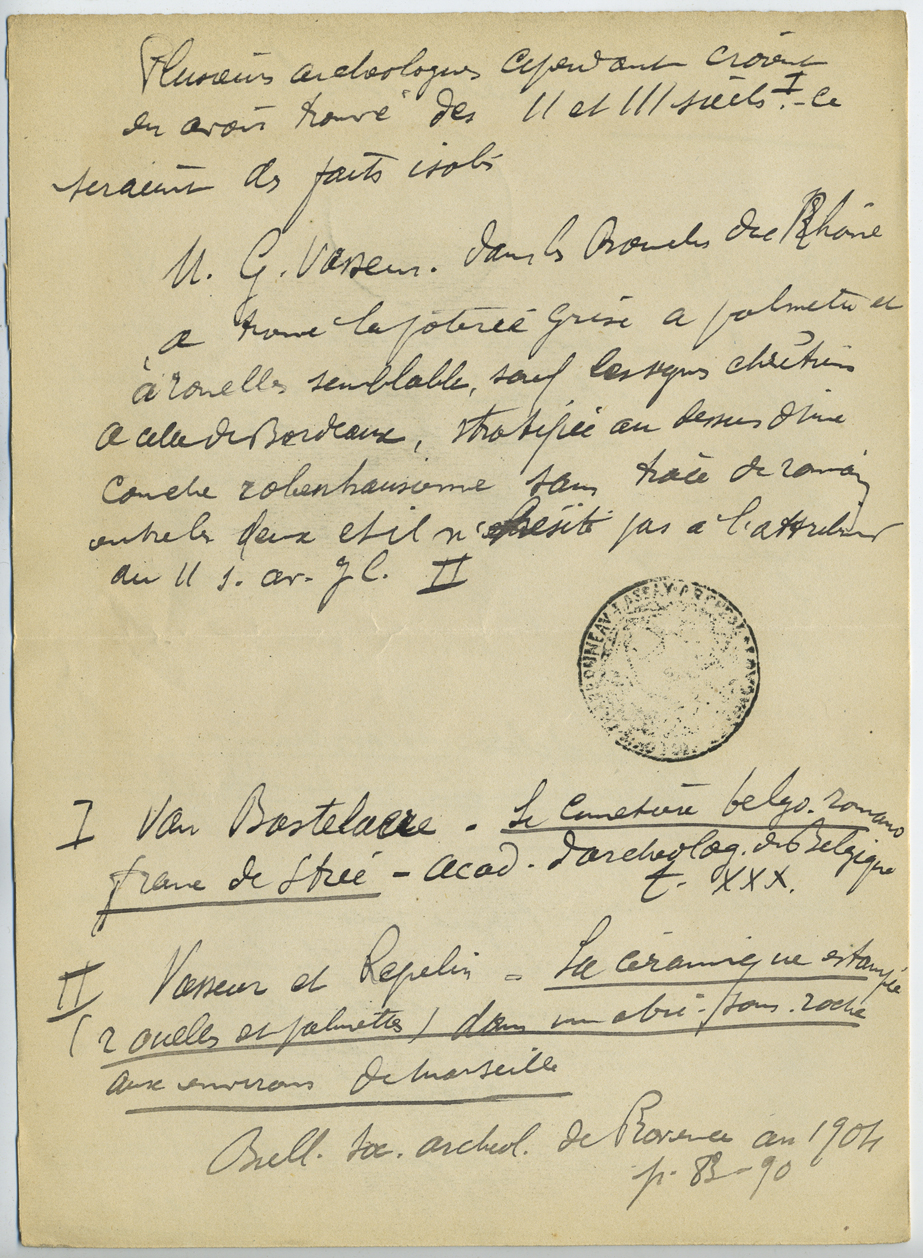 Plusieurs archeologues cependant croient
en avoir trouvé des II et III siècls I. ce
seraient des faits isolés
M. G. Vasseur. dans les Bouches du Rhône
a trouvé la poterie grise a palmettes et
à rouelles semblable, sauf les signes chrétiens
a celle de Bordeaux, stratifiée au dessus d'une
couche robenhausienne sans trace de romain
entre les deux et il n'hésite pas a l'attribuer
au II s. av. J C. II
I Van Bastelaere - Le cimetière belgo-romano
franc de Strée - Acad. d'archéolog. de Belgique
t. XXX.
II Vasseur et Repelin - La céramique estampée
(rouelles et palmettes) dans un abri-sous-roche
aux environs de Marseille
Bull. soc. archeol. de Provence an 1904
p. 83-90